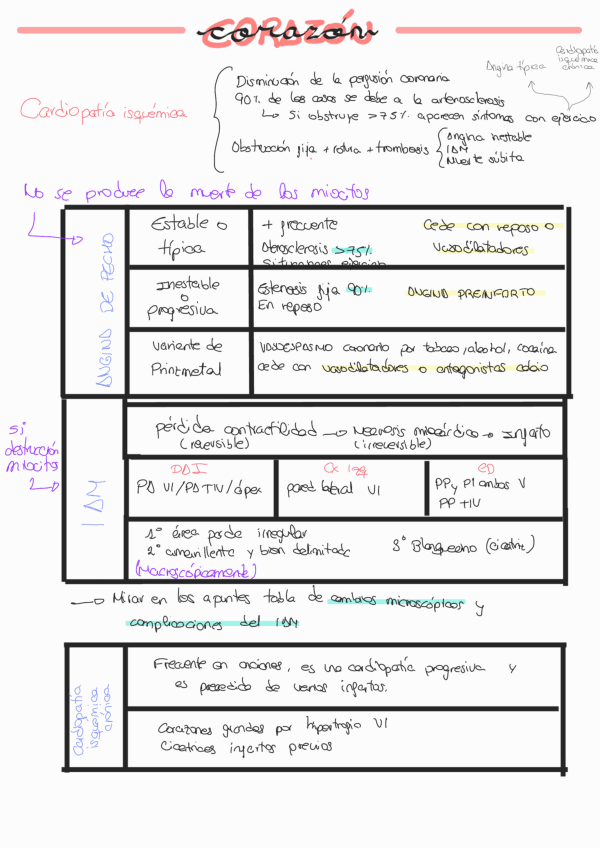 CORAZÓN
corazón
Angina típica
Cardiopatía
isquémica
crónica
Cardiopatía isquémica
Disminución de la perfusión coronaria
90% de los casos se debe a la arterosclerosis
↳ Si obstruye >75% aparecen síntomas con ejercicio
Obstrucción fija + rotura + trombosis
Angina inestable
IAM
Muerte súbita
No se produce la muerte de los miocitos
ANGINA DE PECHO
Estable o
típica
+ frecuente
Aterosclerosis >75%
Cede con reposo o
vasodilatadores
Inestable
o
progresiva
Estenosis fija 90%
En reposo
ANGINA PREINFARTO
Variante de
Printmetal
VASOESPASMO coronario por tabaco, alcohol, cocaína
cede con vasodilatadores o antagonistas calcio
Si
destrucción
miocitos
IAM
pérdida contractilidad → Necrosis miocárdica → Infarto
(reversible)
(irreversible)
DAI
PA VI/PATIV/ápex
Cx izq
pared lateral VI
CD
PP y PI ambos V
PP TIV
1º área parde irregular
2º amarillenta y bien delimitada
3º Blanquecino (cicatriz)
(Macroscópicamente)
→ Mirar en los apuntes tabla de cambios microscópicos y
complicaciones del IAM
Cardiopatía
isquémica
crónica
Frecuente en ancianos, es una cardiopatía progresiva y
es precedida de varios infartos.
Corazones grandes por hipertrofia VI
Cicatrices infartos previos